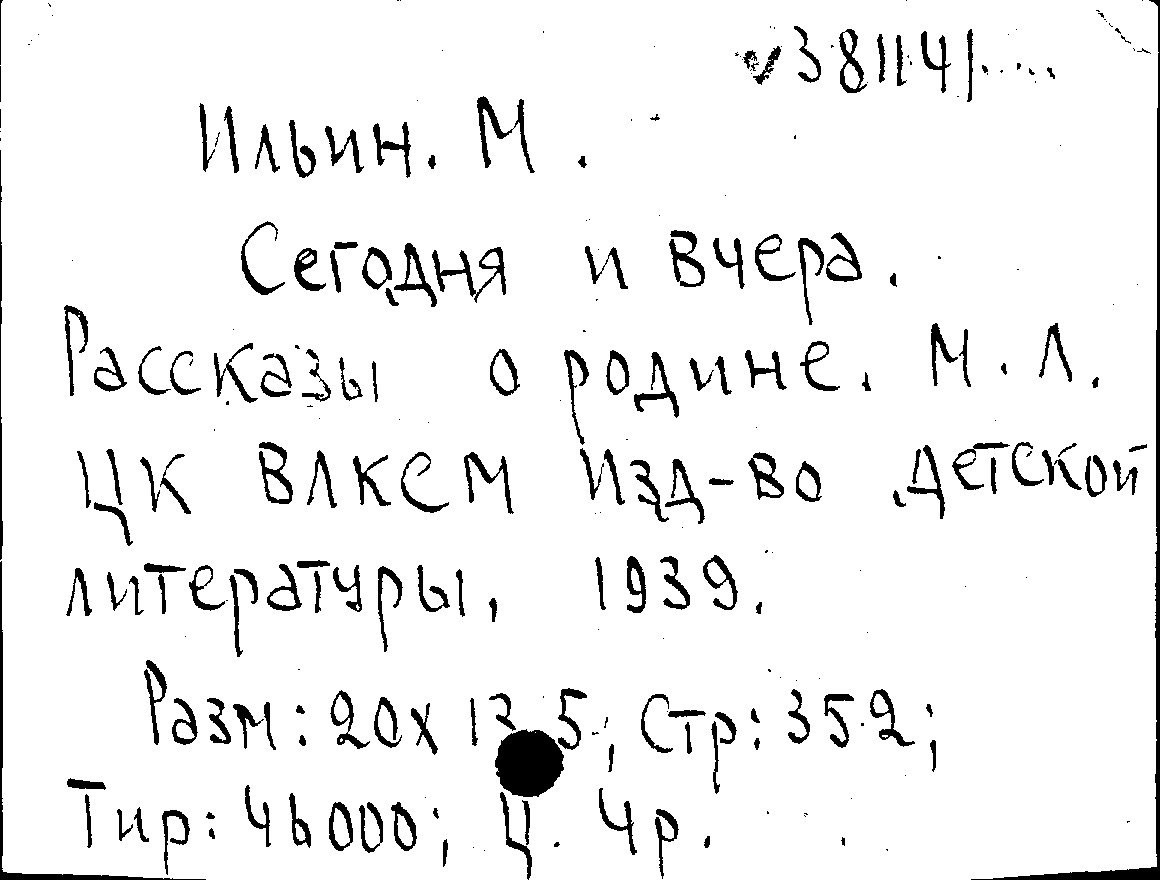 38114
Ильин. М.
Сегодня и вчера.
Рассказы о родине. М. Л.
ЦК ВЛКСМ Изд-во детской
литературы, 1939.
Разм: 20х 13 5; Стр: 352;
Тир: 46000; Ц. 4р.